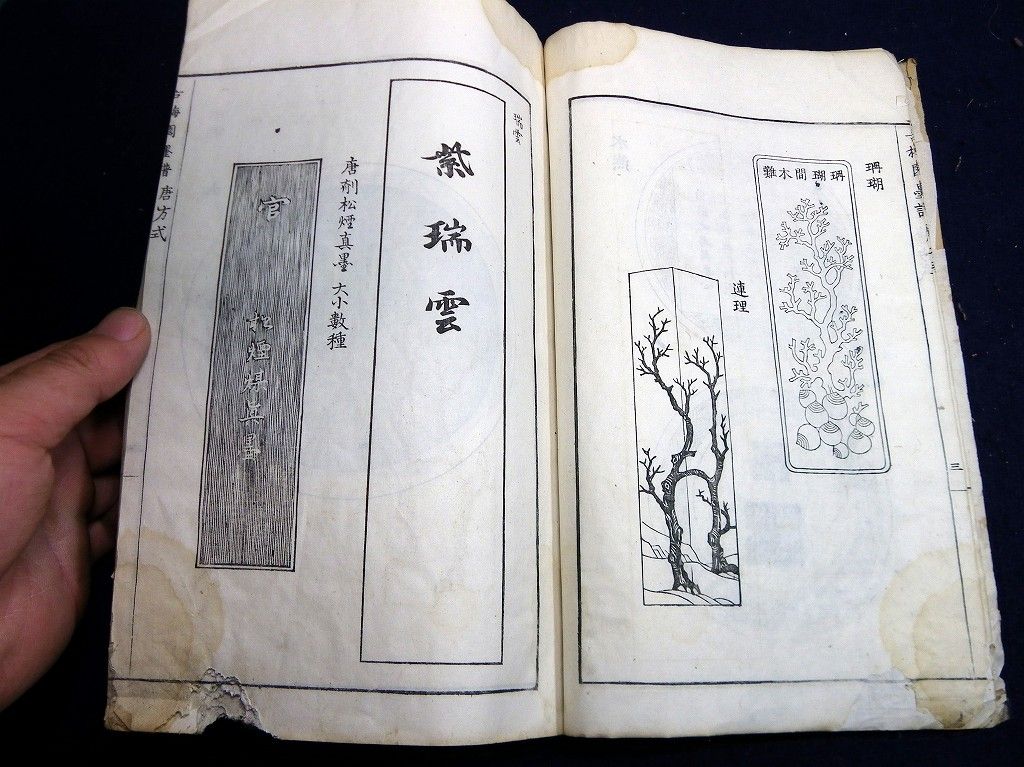 珊瑚
珊瑚間木難
連理
三
瑞雲
紫瑞雲
唐剤松煙真墨 大小數種
官 松煙煤真墨
梅園墨譜 唐方式